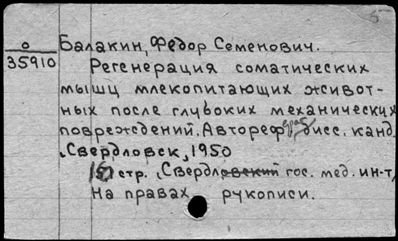 Балакин, Федор Семенович.
о
35910
Регенерация соматических
мышц млекопитающих живот-
ных после глубоких механических
повреждений. Автореферат дисс. канд.
Свердловск, 1950
15 стр. (Свердловский гос. мед. ин-т)
на правах рукописи.